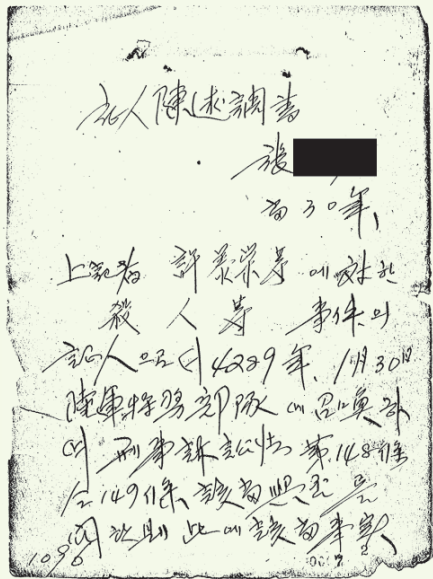 証人陳述調書
張
當30年
上記者 許泰榮等에 対한
殺人等 事件의
証人으로서 4289年 1月30日
陸軍特務部隊에 召喚하
여 刑事訴訟法 第148條
仝149條 該當 与否를
問한 則 此에 該當 事實
1096